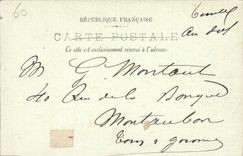 60
RÉPUBLIQUE FRANÇAISE
CARTE POSTALE
Ce côté est exclusivement réservé à l'adresse.
M G. Montaut
40 Rue de la Banque
Montauban
Tarn & Garonne